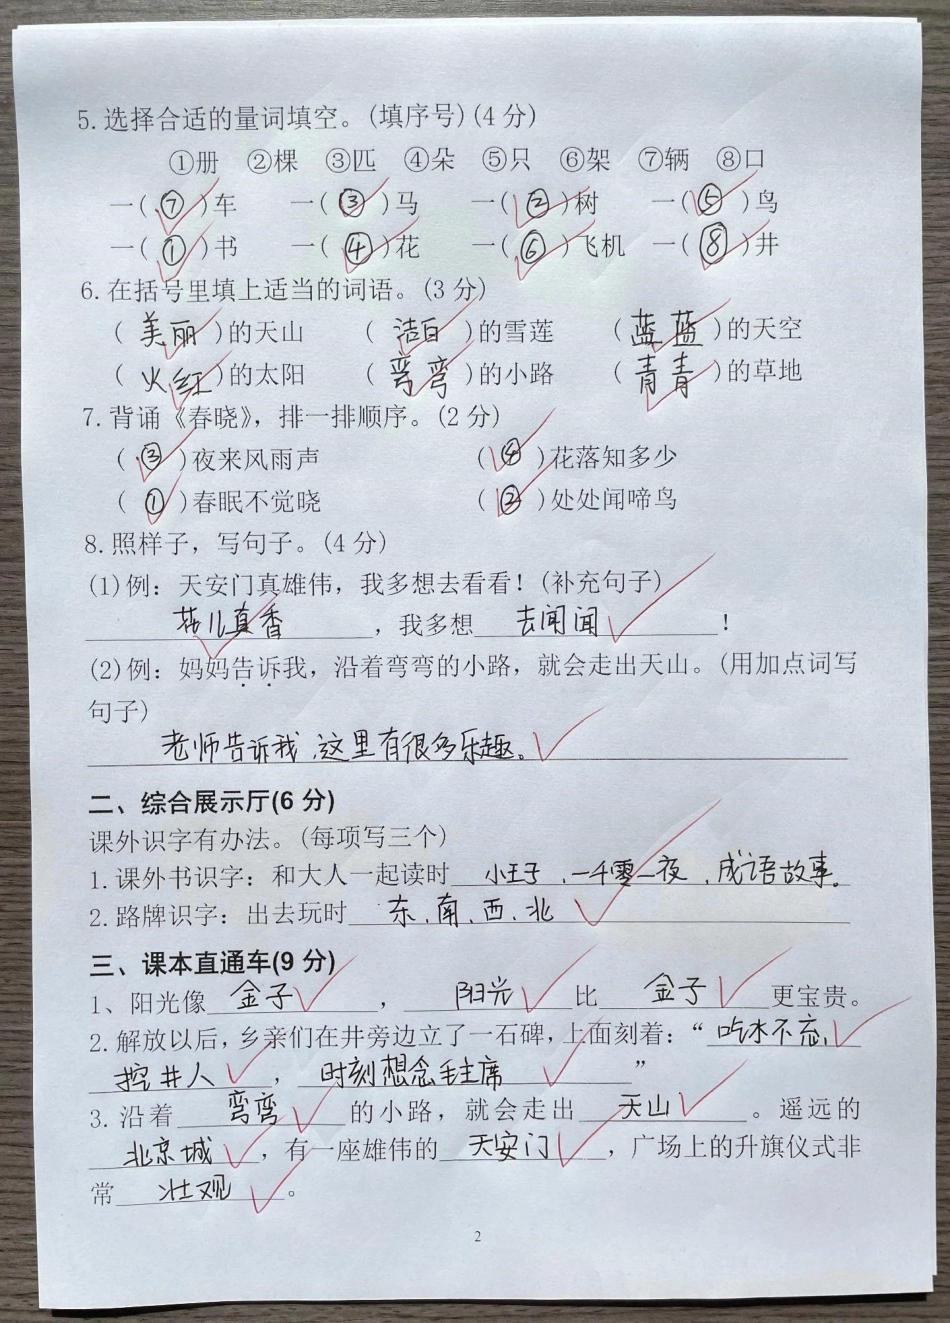 5.选择合适的量词填空。(填序号)(4分)
①册 ②棵 ③匹 ④朵 ⑤只 ⑥架 ⑦辆 ⑧口
一(⑦)车 一(③)马 一(②)树 一(⑤)鸟
一(①)书 一(④)花 一(⑥)飞机 一(⑧)井
6.在括号里填上适当的词语。(3分)
(美丽)的天山 (洁白)的雪莲 (蓝蓝)的天空
(火红)的太阳 (弯弯)的小路 (青青)的草地
7.背诵《春晓》，排一排顺序。(2分)
(③)夜来风雨声 (④)花落知多少
(①)春眠不觉晓 (②)处处闻啼鸟
8.照样子，写句子。(4分)
(1)例：天安门真雄伟，我多想去看看！(补充句子)
花儿真香，我多想去闻闻！
(2)例：妈妈告诉我，沿着弯弯的小路，就会走出天山。(用加点词写
句子)
老师告诉我,这里有很多乐趣。
二、综合展示厅(6分)
课外识字有办法。(每项写三个)
1.课外书识字：和大人一起读时小王子、一千零一夜、成语故事。
2.路牌识字：出去玩时东、南、西、北
三、课本直通车(9分)
1、阳光像金子，阳光比金子更宝贵。
2.解放以后，乡亲们在井旁边立了一石碑，上面刻着：“吃水不忘
挖井人，时刻想念毛主席”
3.沿着弯弯的小路，就会走出天山。遥远的
北京城，有一座雄伟的天安门，广场上的升旗仪式非
常壮观。
2